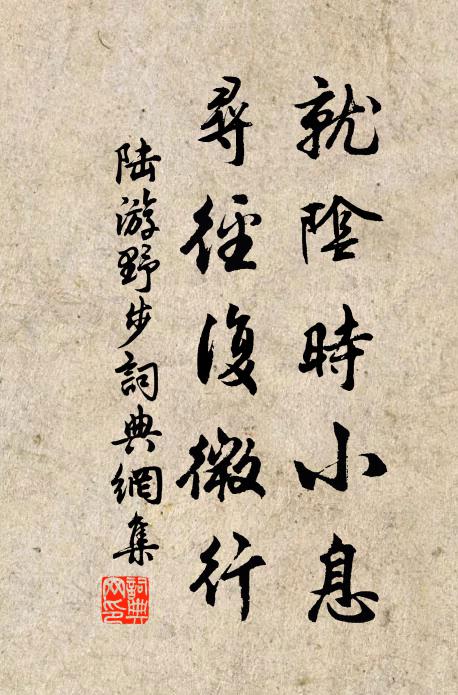 就陰時小息
尋徑復微行
陸游野步詞典網集
詞典網印